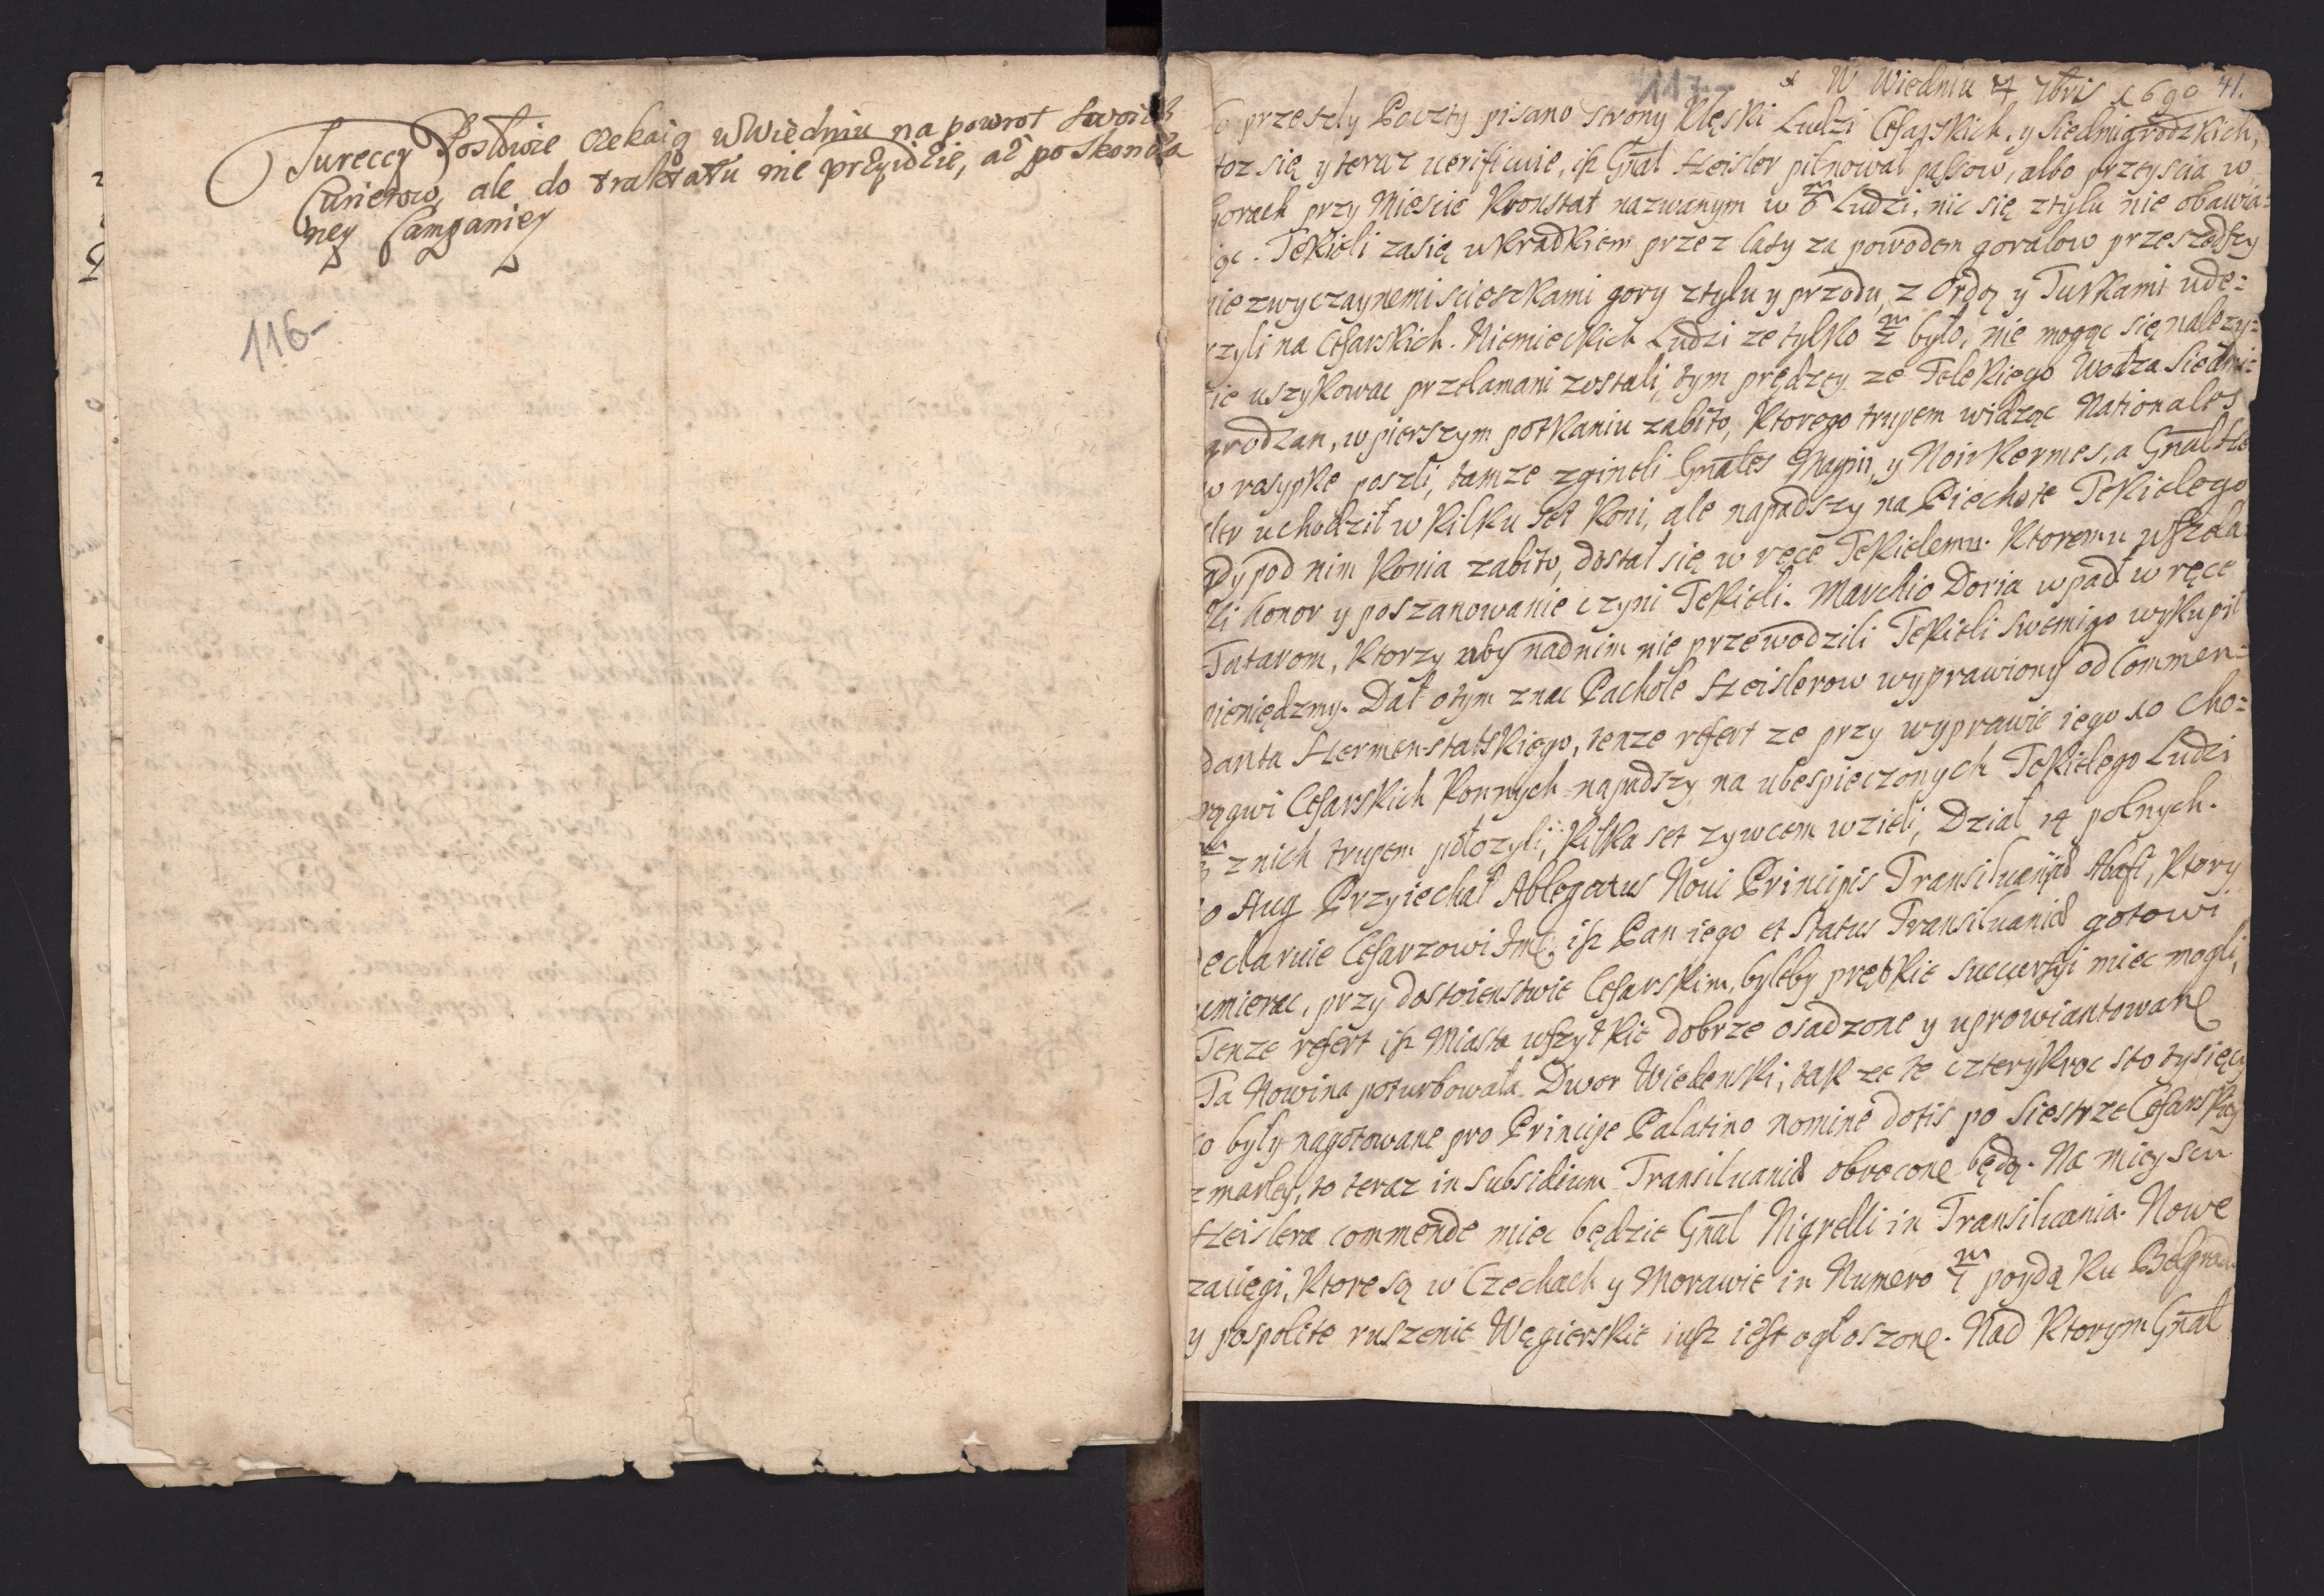 Tureccy Posłowie czekaią w Wiedniu na powrot swoich
Curierow, ale do traktatu nie przyidzie, aż po skonczo
ney Campaniey
116-
117
W Wiedniu 4 7bris 1690 41.
Co przeszly Poczty pisano strony Klęski Ludzi Cesarskich, y Siedmigrodzkich,
toz się y teraz uerificuie, isz Gnał Heisler pilnował passow, albo przeyscia w
Gorach przy Miescie Kronstat nazwanym w 6 m Ludzi, nic się ztyłu nie obawia-
iąc. Tekieli zasię ukradkiem przez lasy za powodem goralow przeszedszy
niezwyczaynemi scieszkami gory ztyłu y przodu, z Ordą y Turkami ude-
rzyli na Cesarskich. Niemieckich Ludzi ze tylko 2 m było, nie mogąc się nalezy-
cie uszykowac przełamani zostali, tym prędzey ze Telekiego Wodza Siedmi-
grodzan, w pierszym potkaniu zabito, ktorego trupem widząc Nationales
w rosypke poszli, tamze zgineli Gnałes Magni, y Noirkermes, a Gnał Hei
sler uchodził w kilku set koni, ale napadszy na Piechote Tekielego
gdy pod nim konia zabito, dostał się w ręce Tekielemu. Ktoremu wszela
ki honor y poszanowanie czyni Tekieli. Marchio Doria wpadł w ręce
Tatarom, ktorzy aby nadnim nie przewodzili Tekieli swemi go wykupił
pieniędzmy. Dał otym znac Pachole Heislerow wyprawiony od Commen-
danta Hermenstatskiego, tenze refert ze przy wyprawie iego 10 Cho-
rągwi Cesarskich konnych napadszy na ubespieczonych Tekielego Ludzi
3 m z nich trupem położyli, kilka set zywcem wzieli, Dział 14 polnych.
Aug Przyiechał Ablegatus Noui Principis Transiluaniæ Abafi, ktory
declaruie Cesarzowi Jmć, isz Pan iego et Status Transiluaniæ gotowi
umierac, przy dostoienstwie Cesarskim, byleby prętkie succursy miec mogli,
Tenze refert isz Miasta wszytkie dobrze osadzone y uprowiantowane
Ta Nowina poturbowała Dwor Wiedenski, tak ze te czterykroc sto tysięcy
co były nagotowane pro Principe Palatino nomine dotis po Siestrze Cesarskiey
zmarłey, to teraz in Subsidium Transiluaniæ obrocone będą. Na mieyscu
Heislera commende miec będzie Gnał Nigrelli in Transiluania. Nowe
zaciegi, ktore są w Czechach y Morawie in Numero 7 m poydą ku Belgradu
y pospolite ruszenie Węgierskie iusz iest ogłoszone. Nad ktorym Gnał